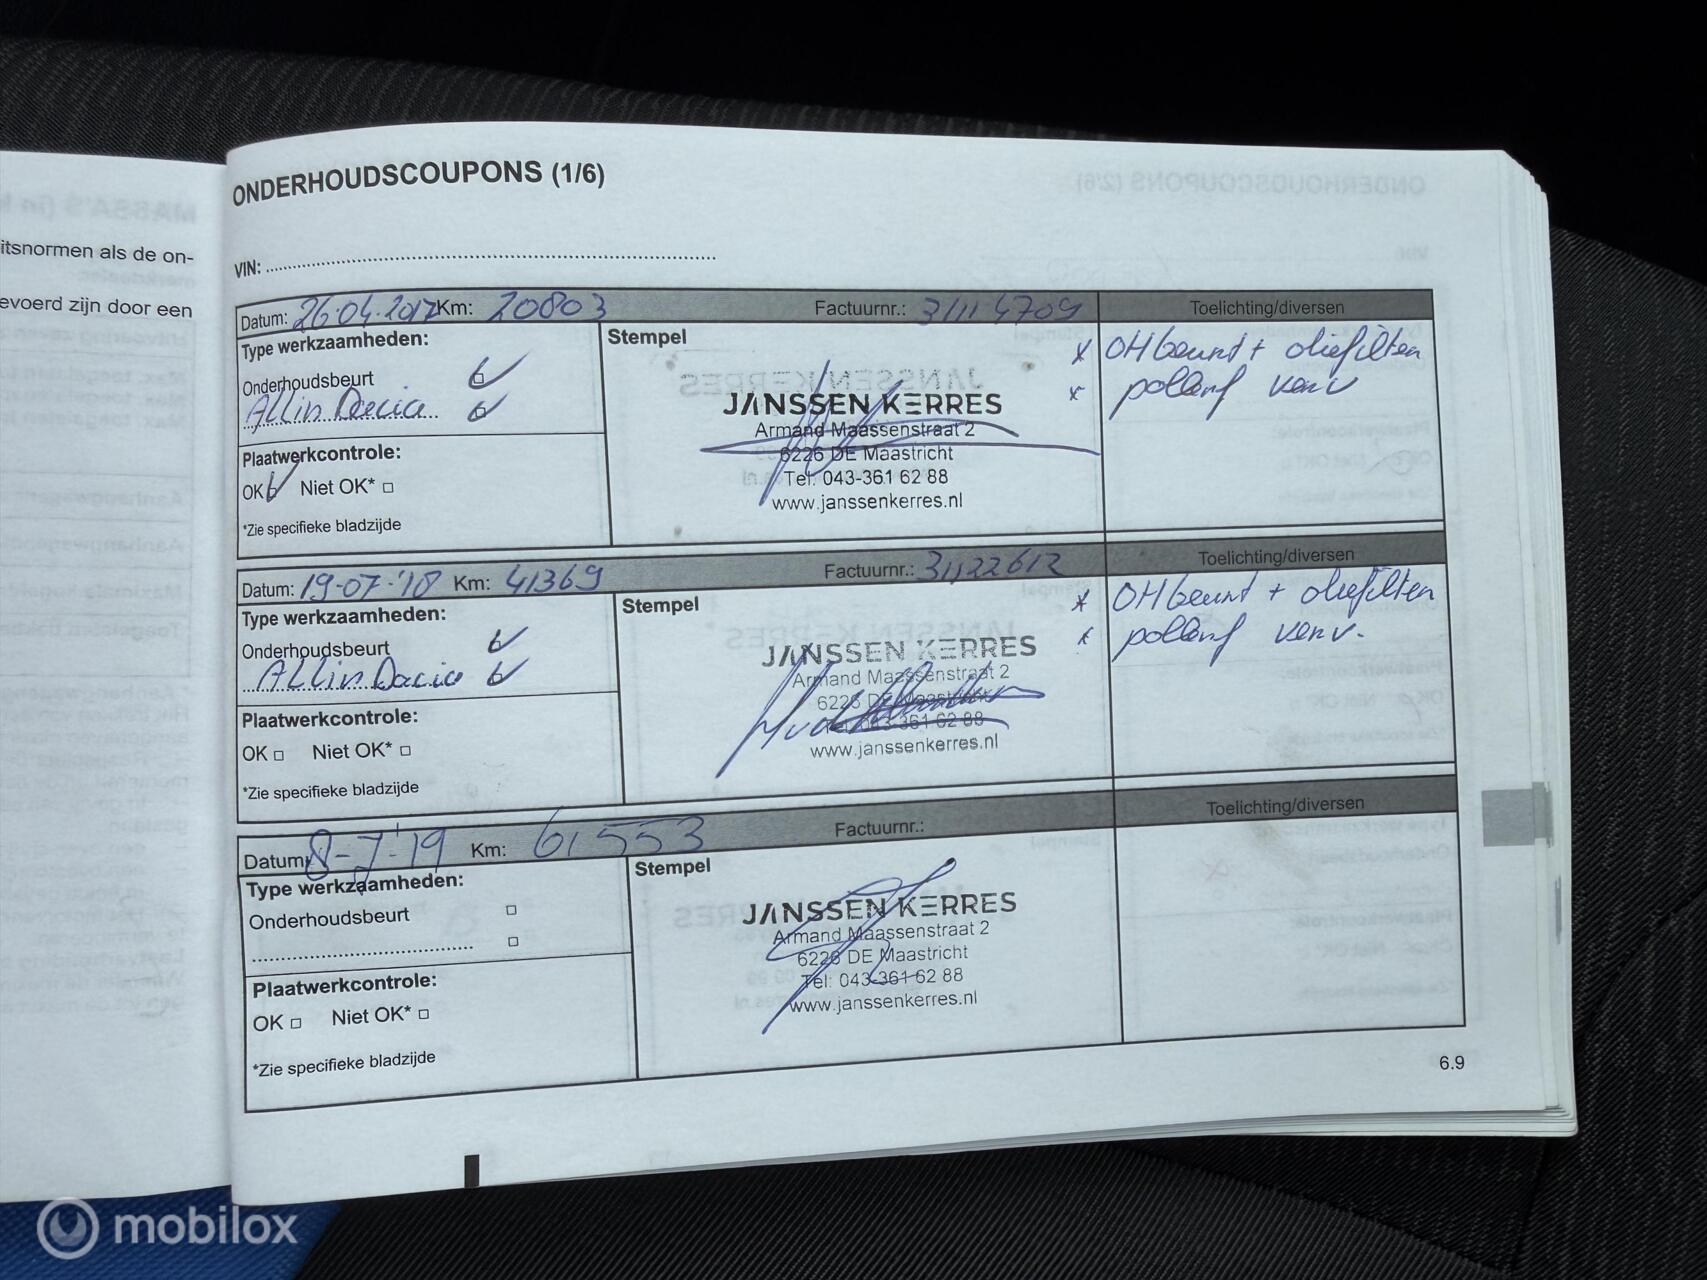 itsnormen als de on-
evoerd zijn door een
ONDERHOUDSCOUPONS (1/6)
VIN:
Datum: 26-04-2017 Km: 20803 Factuurnr.: 31114709 Toelichting/diversen
Type werkzaamheden:
Stempel
Onderhoudsbeurt
Allin Dacia
Plaatwerkcontrole:
OK Niet OK*
*Zie specifieke bladzijde
JANSSEN KERRES
Armand Maassenstraat 2
6226 DE Maastricht
Tel: 043-361 62 88
www.janssenkerres.nl
* OH beurt + oliefilter
* pollenf verv
Datum: 19-07-'18 Km: 41369 Factuurnr.: 31122612 Toelichting/diversen
Type werkzaamheden:
Stempel
Onderhoudsbeurt
Allin Dacia
Plaatwerkcontrole:
OK Niet OK*
*Zie specifieke bladzijde
JANSSEN KERRES
Armand Maassenstraat 2
6226 DE Maastricht
Tel: 043-361 62 88
www.janssenkerres.nl
* OH beurt + oliefilter
* pollenf verv.
Datum: 8-7-'19 Km: 61553 Factuurnr.: Toelichting/diversen
Type werkzaamheden:
Stempel
Onderhoudsbeurt
Plaatwerkcontrole:
OK Niet OK*
*Zie specifieke bladzijde
JANSSEN KERRES
Armand Maassenstraat 2
6226 DE Maastricht
Tel: 043-361 62 88
www.janssenkerres.nl
6.9
mobilox